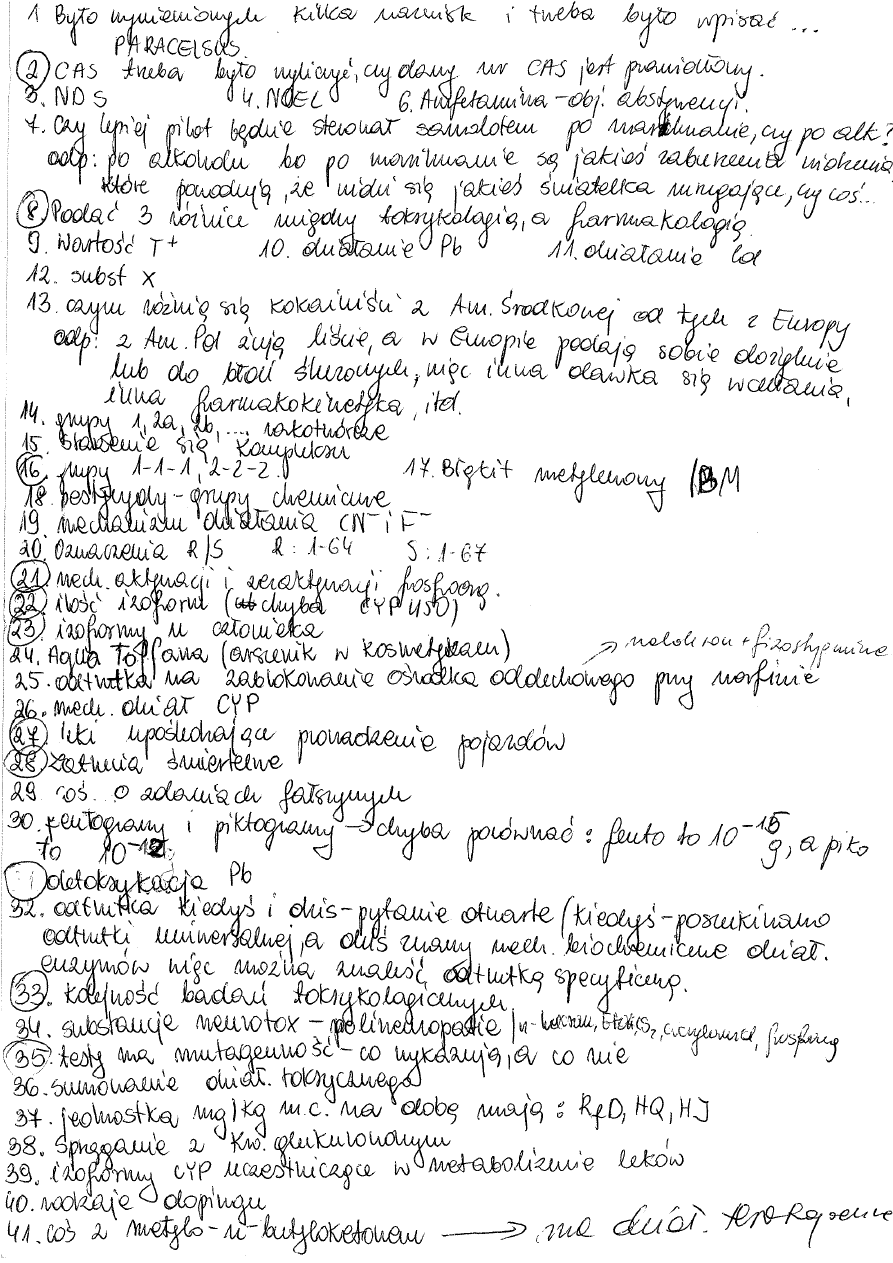 1 Było wymienionych kilka nazwisk i trzeba było wpisać ...
PARACELSUS.
2 CAS trzeba było wyliczyć, czy dany nr CAS jest prawidłowy.
3. NDS 4. NOEL 6. Amfetamina - obj. abstynencji.
7. Czy lepiej pilot będzie sterował samolotem po marihuanie, czy po alk?
odp: po alkoholu bo po marihuanie są jakieś zaburzenia widzenia
które powodują, że widzi się jakieś światełka mrugające, czy coś...
8 Podać 3 różnice między toksykologią, a farmakologią
9. Wartość T+ 10. działanie Pb 11. działanie Cd
12. subst X
13. czym różnią się kokainiści z Am. Środkowej od tych z Europy
odp: z Am. Płd żują liście, a w Europie podają sobie dożylnie
lub do błon śluzowych, więc inna dawka się wchłania,
inna farmakokinetyka, itd.
14. grupy 1, 2a, 2b, .... rakotwórcze
15. Stawienie się kompleksu
16. grupy 1-1-1, 2-2-2. 17. Błękit metylenowy /BM
18. pestycydy - grupy chemiczne
19. mechanizm działania CN⁻ i F⁻
20. Oznaczenia R/S R: 1-64 S: 1-67
21 mech. aktywacji i zeraktywacji fosforoorg.
22. ilość izoform (chyba CYP 450)
23. izoformy u człowieka
24. Aqua Toffana (arsenik w kosmetykach)
naloxon + fizostygmina
25. odtrutka na zablokowanie ośrodka oddechowego przy morfinie
26. mech. dział CYP
27. leki upośledzające prowadzenie pojazdów
28 zatrucia śmiertelne
29 coś o zdaniach fałszywych
30. femtogramy i piktogramy → chyba porównać: femto to 10⁻¹⁵ g, a piko
to 10⁻¹².
detoksykacja Pb
32. odtrutka kiedyś i dziś - pytanie otwarte (kiedyś - poszukiwano
odtrutki uniwersalnej, a dziś znamy mech. biochemiczne dział.
enzymów więc można znaleść odtrutkę specyficzną.
33. kolejność badań toksykologicznych
34. substancje neurotox - polineuropatie
35. testy na mutagenność - co wykazują, a co nie
36. sumowanie dział. toksycznego
37. jednostką mg/kg m.c. na dobę mają: RfD, HQ, HJ
38. sprzęganie z kw. glukuronowym
39. izoformy CYP uczestniczące w metabolizmie leków
40. rodzaje dopingu
41. coś z metylo-n-butyloketonem → ma dział.